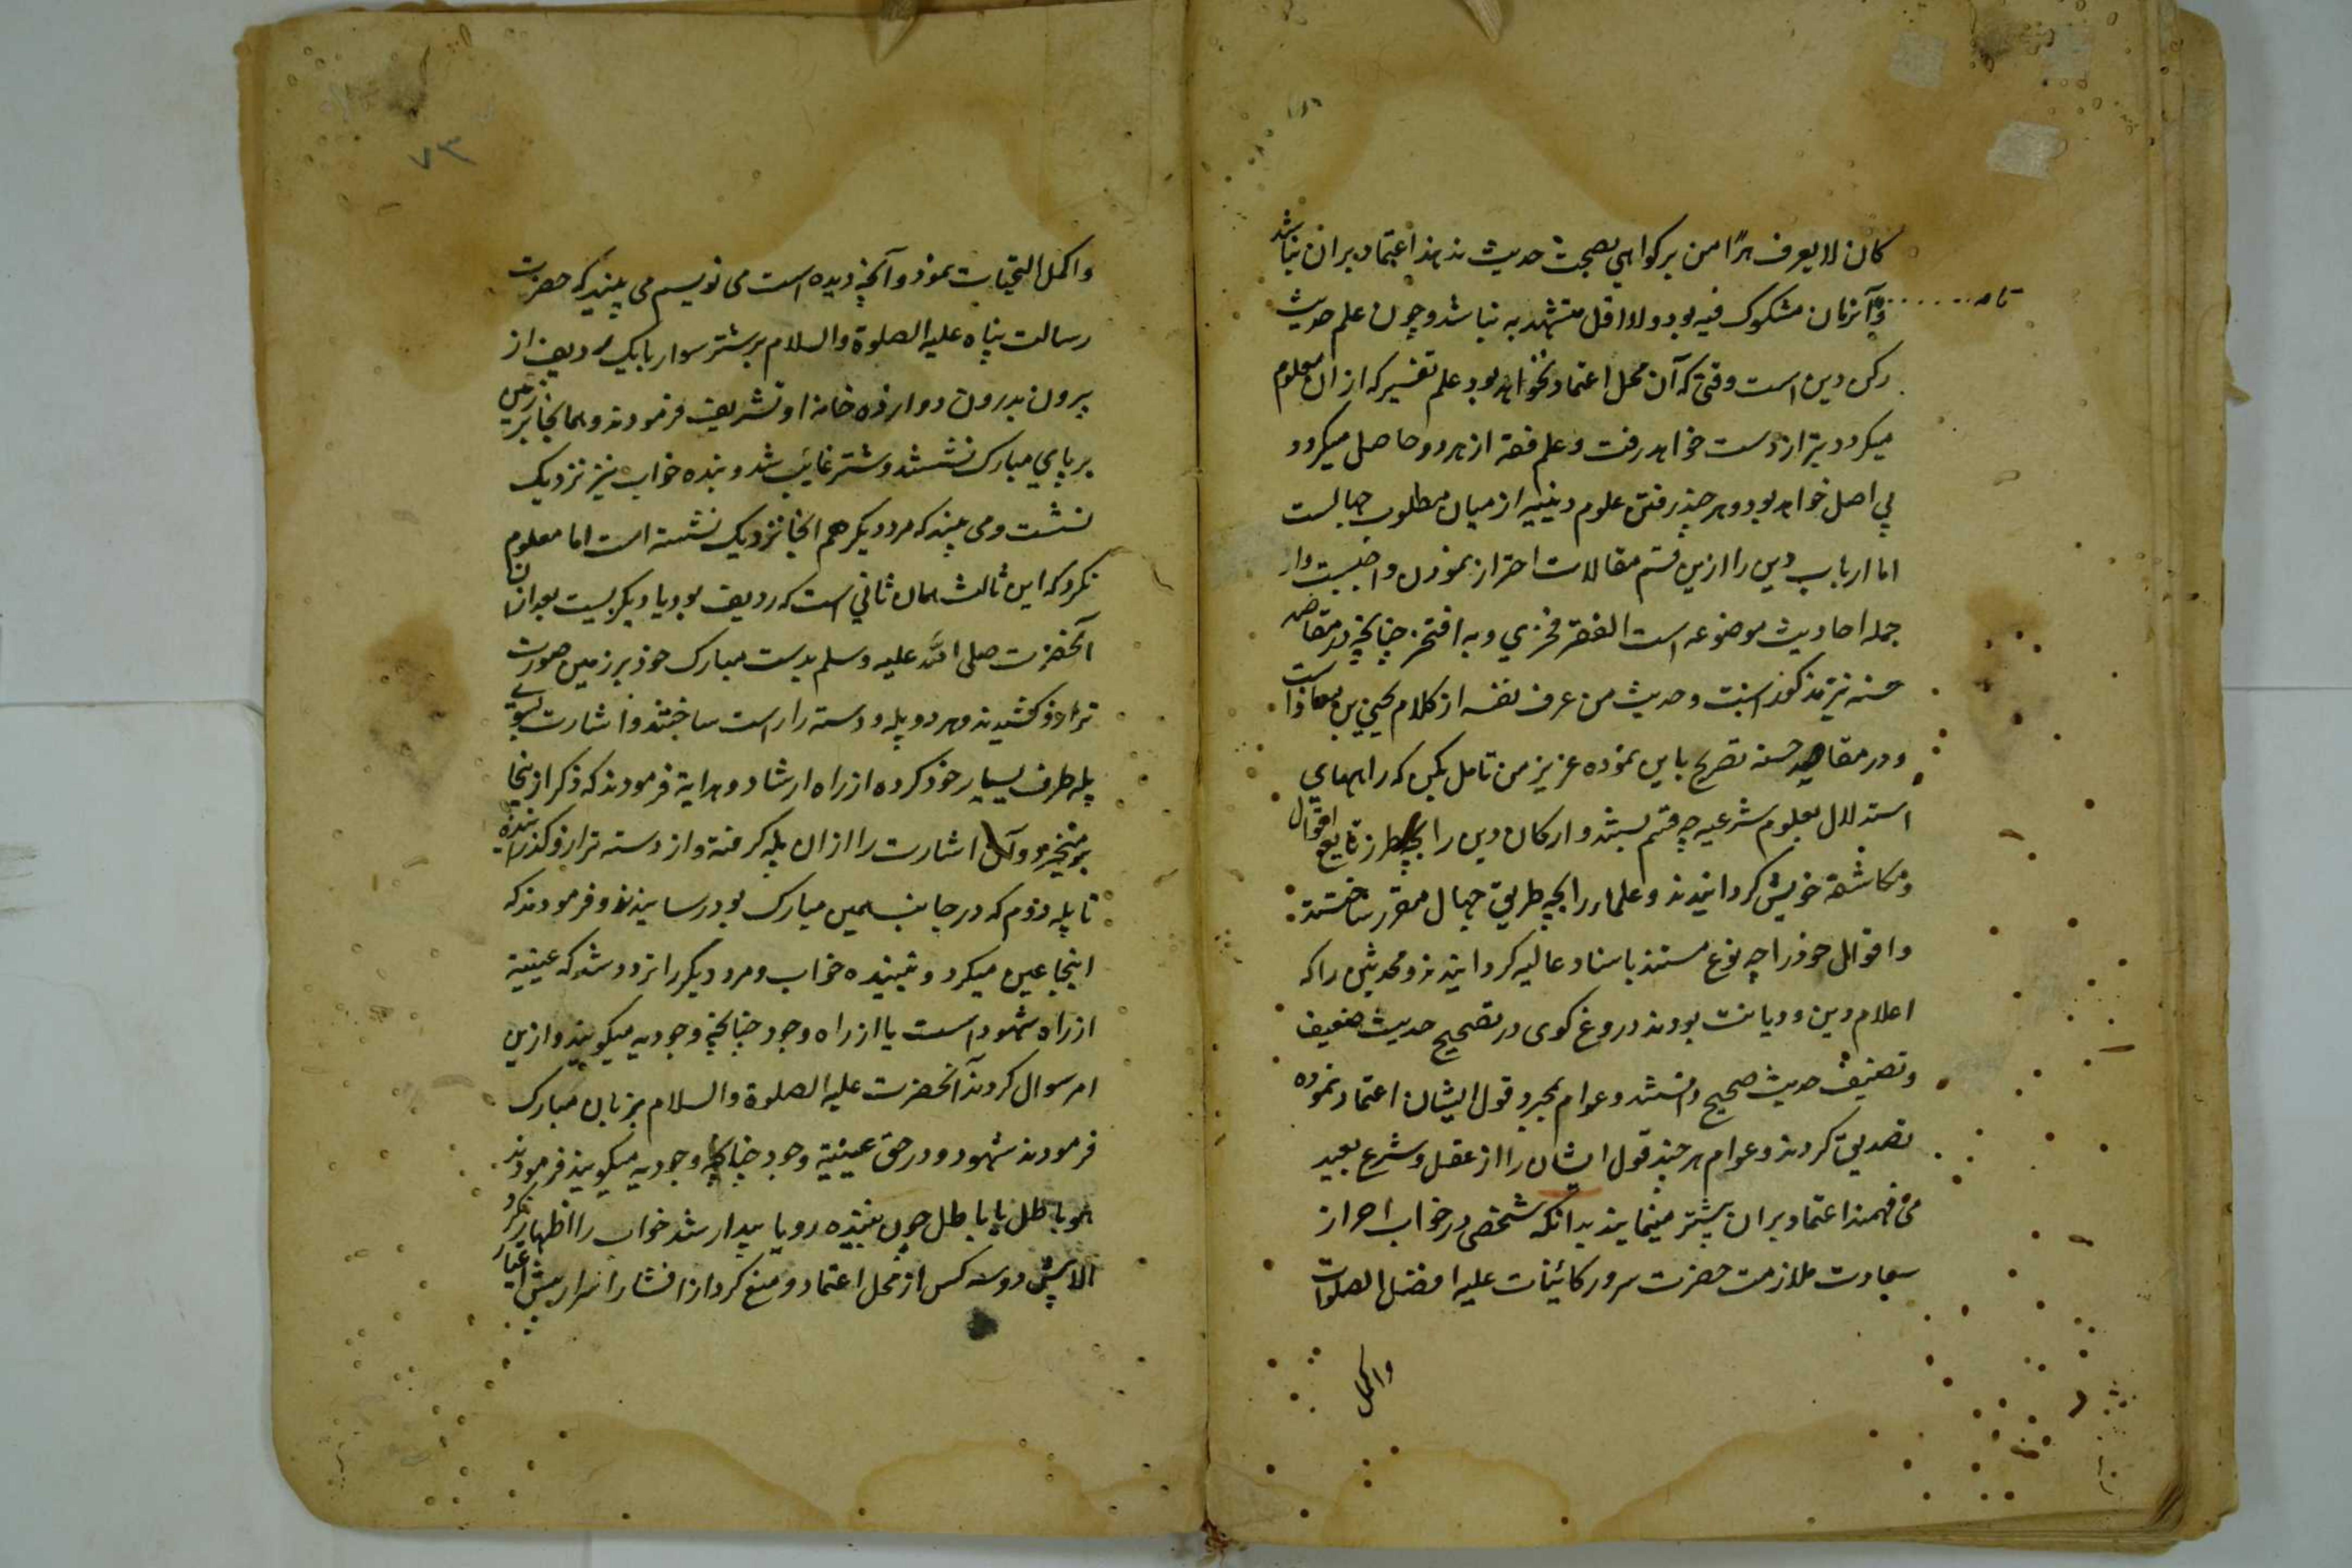 کان لا یعرف هرًا من بر کواهی بصحت حدیث ندهند اعتماد بران نباشد
و آنزمان مشکوک فیه بود ولا اقل متشهد به نباشد و چون علم حدیث
تامه
رکن دین است وقتی که آن محل اعتماد نخواهد بود علم تفسیر که ازان معلوم
میکردد نیز از دست خواهد رفت و علم فقه از هر دو حاصل میکردد
بی اصل خواهد بود و هر چند رفتن علوم دینیه از میان مطلوب جهالست
اما ارباب دین را ازین قسم مقالات احتراز نمودن واجبست و از
جمله احادیث موضوعه است الفقر فخری و به افتخر چنانچه در مقاصد
حسنه نیز مذکور است و حدیث من عرف نفسه از کلام یحیی بن معاذ است
و در مقاصد حسنه تصریح باین نموده عزیز من تامل بکن که راههای
استدلال بعلوم شرعیه چه قسم بستند و ارکان دین را بچه طرز تابع اقوال
و مکاشفه خویش کردانیدند و علماء را بچه طریق جهال مقرر ساختند
و اقوال خود را چه نوع مستند باسناد عالیه کردانیدند و محدثین را که
اعلام دین و دیانت بودند دروغ کوی در تصحیح حدیث ضعیف
و تضعیف حدیث صحیح دانستند و عوام بمجرد قول ایشان اعتماد نموده
تصدیق کردند و عوام هر چند قول ایشان را از عقل و شرع بعید
می فهمند اعتماد بران بیشتر مینمایند بدانکه شخصی در خواب احراز
سعادت ملازمت حضرت سرور کائینات علیه افضل الصلوات
واکمل
۷۳
واکمل التحیات نمود و آنچه دیده است می نویسم می بیند که حضرت
رسالت پناه علیه الصلوة والسلام بر شتر سوار با یک ردیف از
بیرون بدرون دروازه خانه او تشریف فرمودند و همانجا بر زمین
بر پای مبارک نشستند و شتر غائب شد و بننده خواب نیز نزدیک
نشست و می بیند که مرد دیکر هم انجا نزدیک نشسته است اما معلوم
نکرد که این ثالث همان ثانی است که ردیف بود یا دیکریست بعد ازان
آنحضرت صلی الله علیه وسلم بدست مبارک خود بر زمین صورت
ترازو کشیدند و هر دو پله و دسته را راست ساختند و اشارت بسوی
پله طرف یسار خود کرده از راه ارشاد و هدایة فرمودند که ذکر از ینجا
بر میخیزد و آن اشارت را ازان پله کرفته و از دسته ترازو کذرانیده
تا پله دوم که در جانب یمین مبارک بود رسانیدند و فرمودند که
اینجا عین میکردد و بیننده خواب و مرد دیگر را تردد شد که عینیة
از راه شهود است یا از راه وجود چنانچه وجودیه میکویند و ازین
امر سوال کردند آنحضرت علیه الصلوة والسلام بزبان مبارک
فرمودند شهود و در حق عینیة وجود چنانچه وجودیه میکویند فرمودند
هو باطل یا باطل چون بیننده رویا بیدار شد خواب را اظهار نکرد
الا پیش دو سه کس از محل اعتماد و منع کرد از افشاء اسرار پیش اغیار